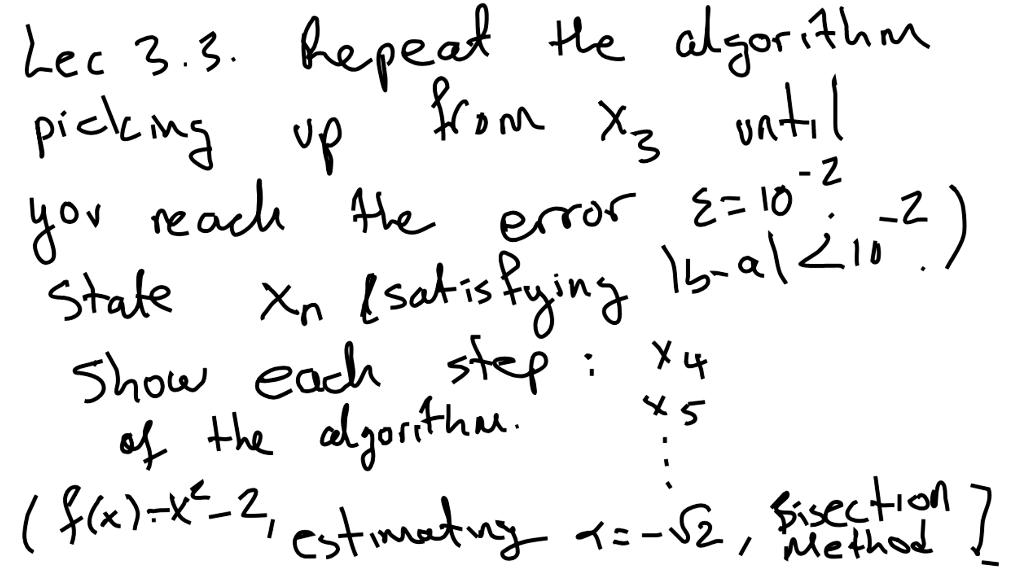 Lec 3.3. Repeat the algorithm
picking up from x₃ until
you reach the error ε=10⁻².
State xₙ (satisfying |b-a|<10⁻².)
Show each step : x₄
of the algorithm. x₅
⋮
(f(x)=x²-2, estimating α=-√2, Bisection Method]